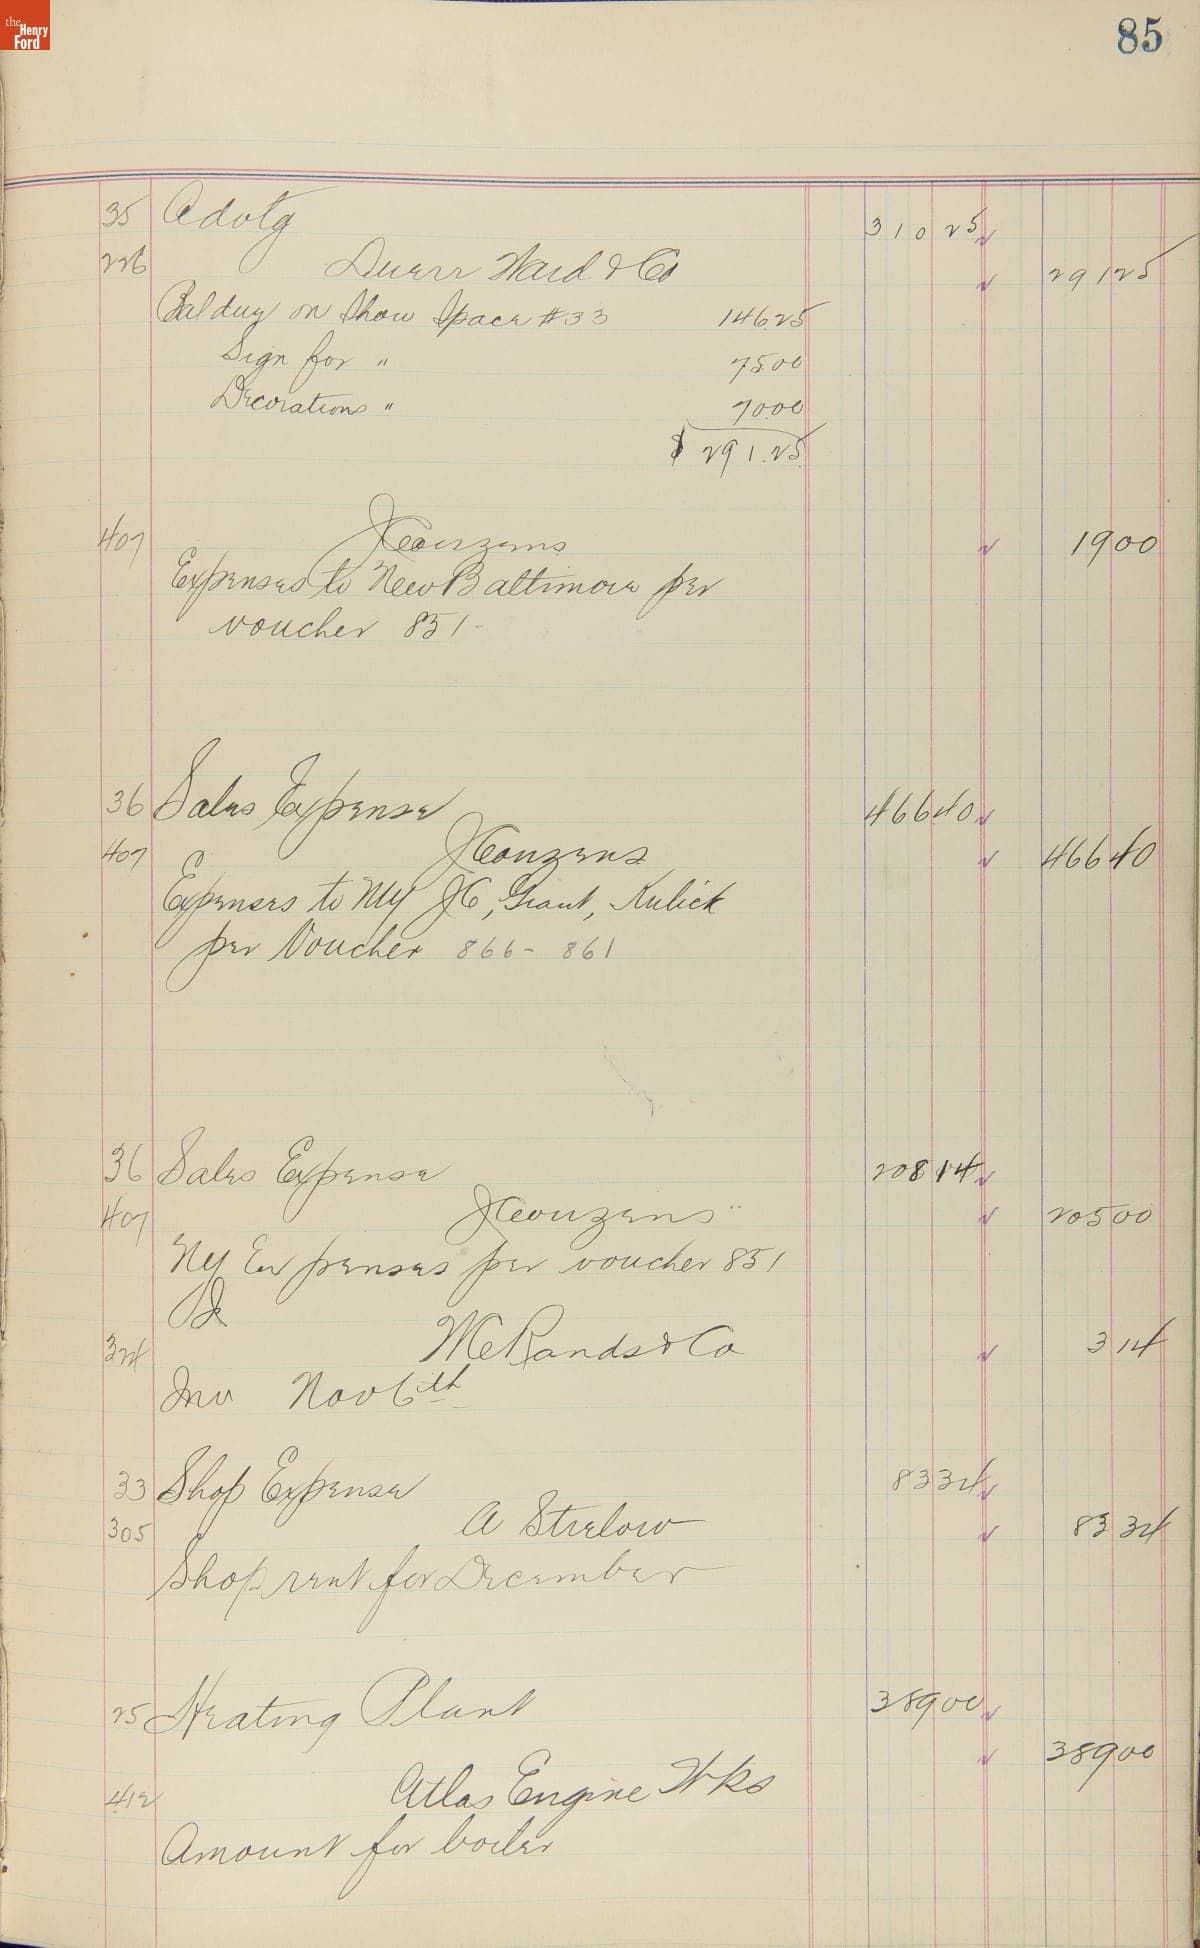 the Henry Ford
85
35 Advtg 310 25
226 Duerr Ward & Co 291 25
Bal due on Show Space #33 146.25
Sign for " 75.00
Decorations " 70.00
$ 291.25
407 J Couzens 19 00
Expenses to New Baltimore per
voucher 851-
36 Sales Expense 466 40
407 J Couzens 466 40
Expenses to NY JC, Grant, Kulick
per Voucher 866- 861
36 Sales Expense 208 14
407 J Couzens 205 00
NY Expenses per voucher 851
324 Wm E Rands & Co 3 14
Inv Nov 6th
33 Shop Expense 83 34
305 A Strelow 83 34
Shop rent for December
25 Heating Plant 389 00
412 Atlas Engine Wks 389 00
Amount for boiler